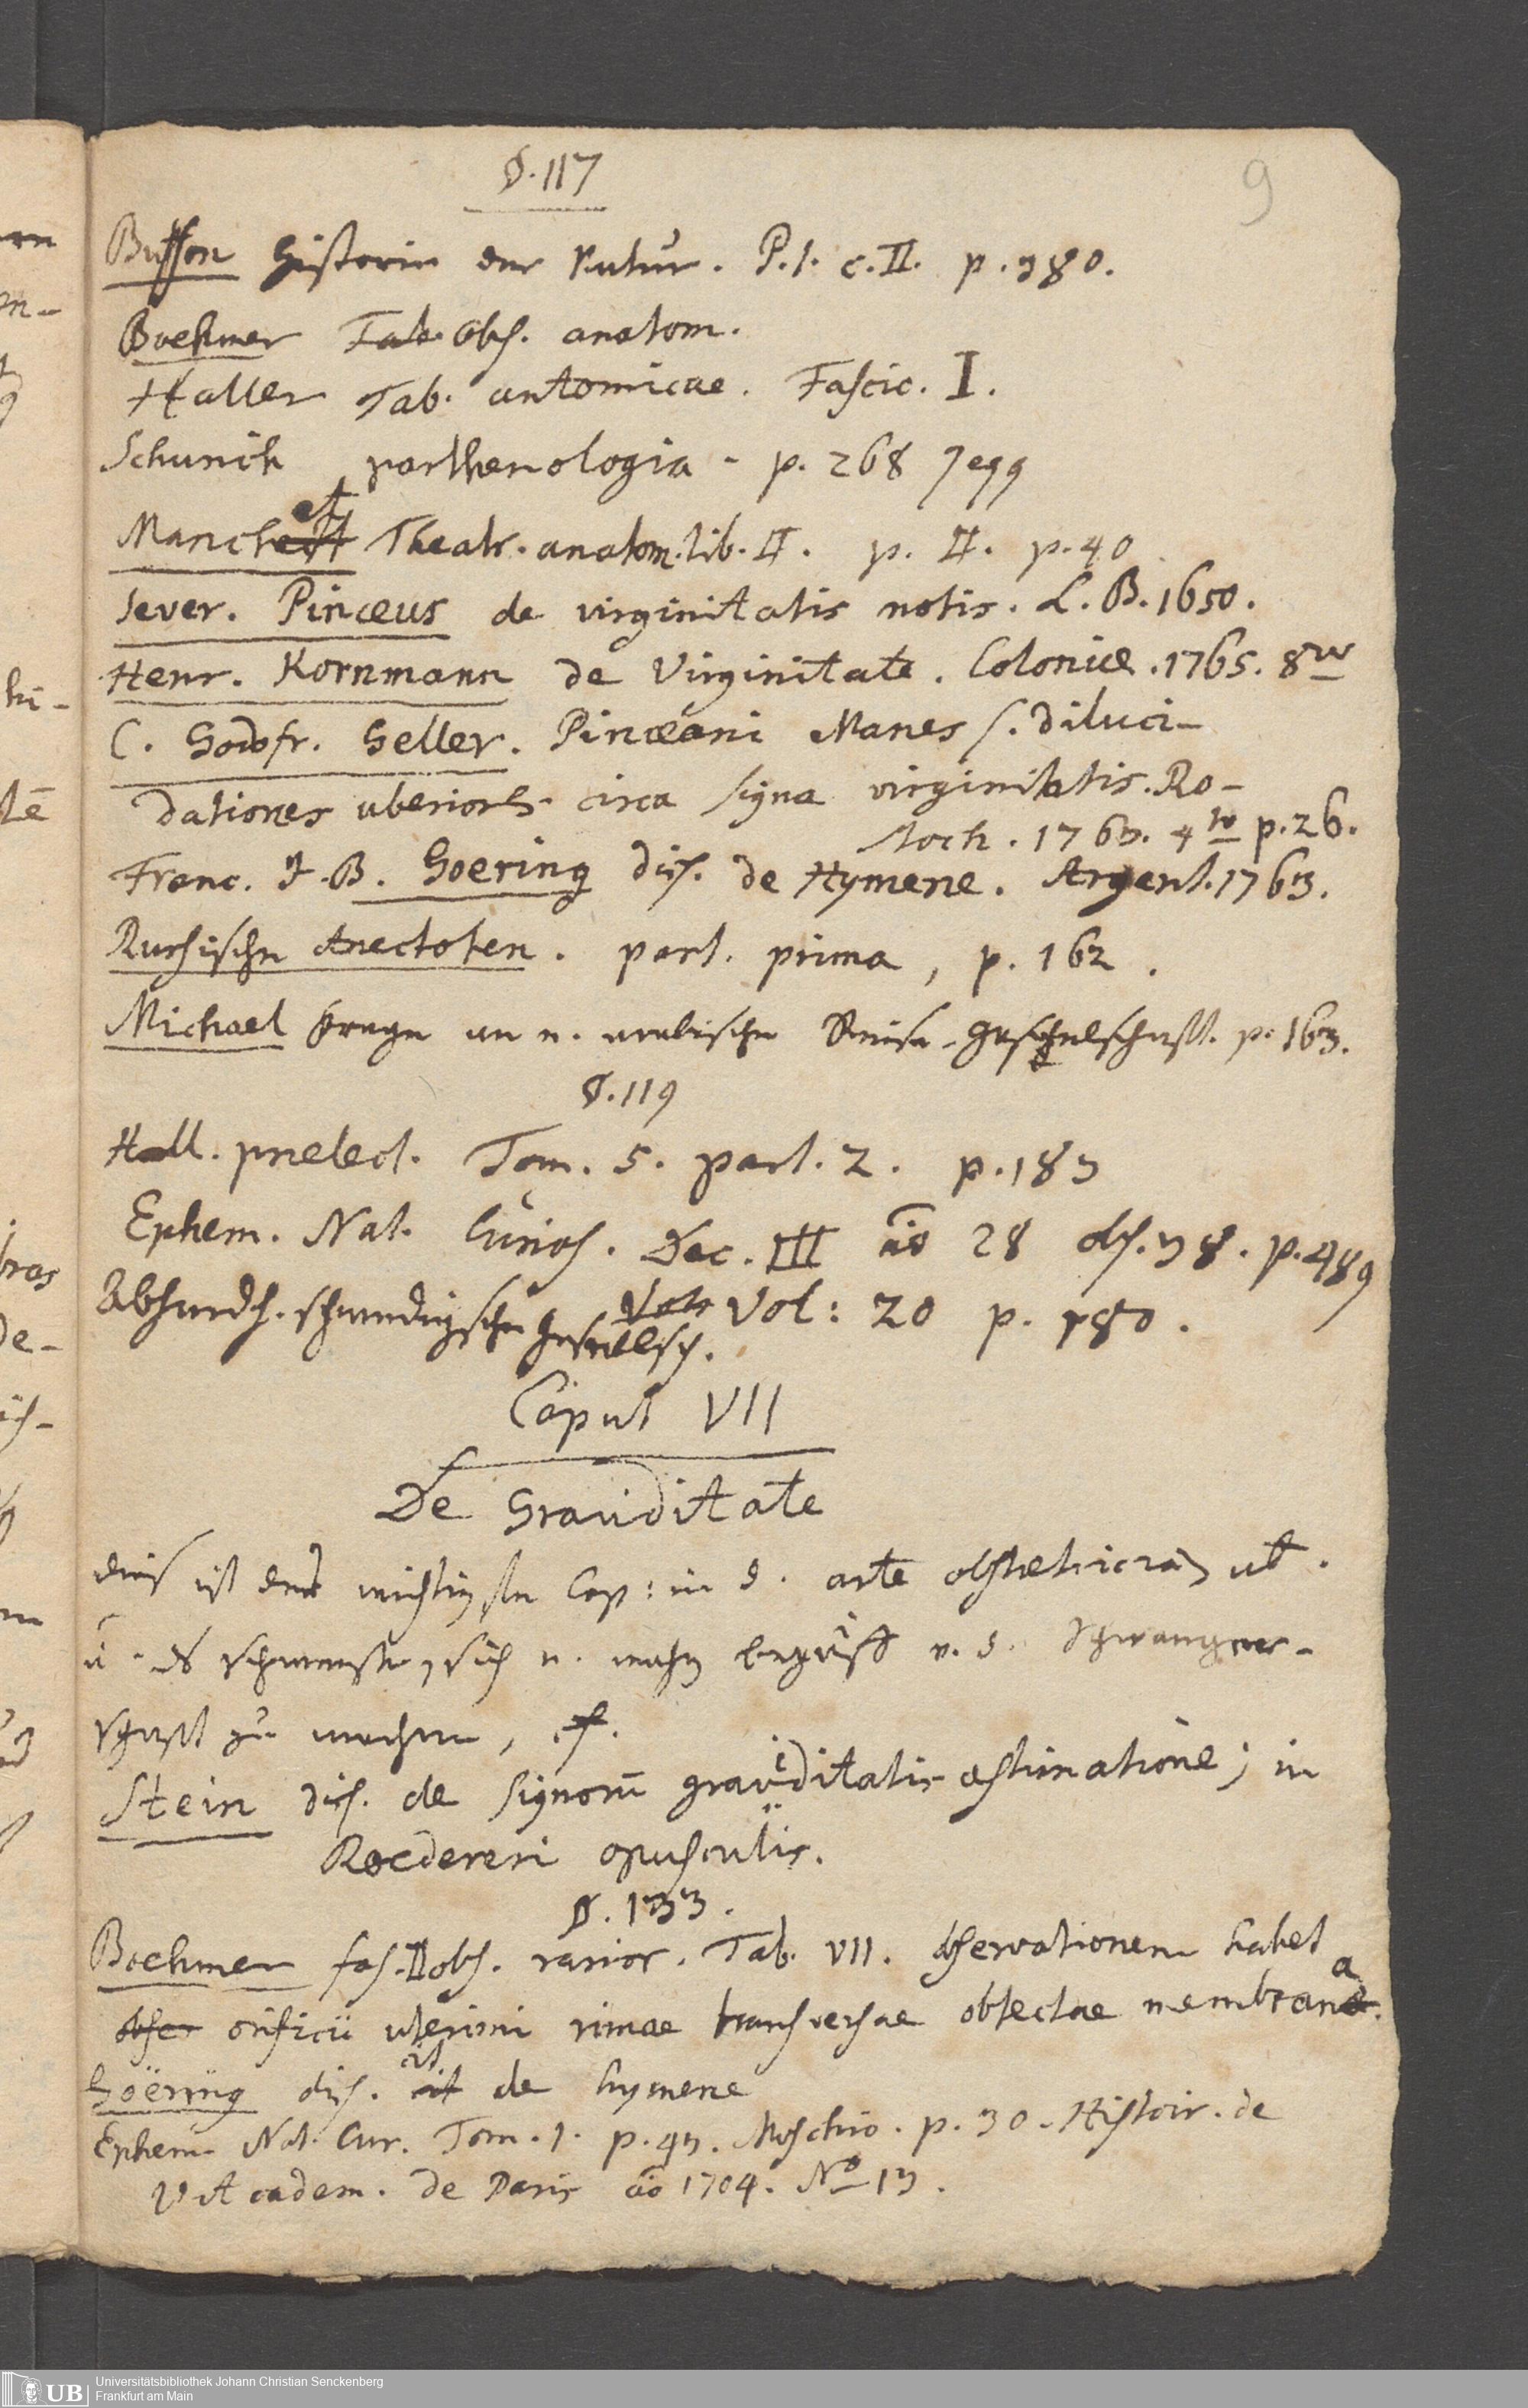 9
§. 117
Buffon Historie der Natur. P. 1. c. II. p. 380.
Boehmer Fab. Obs. anatom.
Haller Tab. antomicae. Fascic. I.
Schurich parthenologia - p. 268 seqq
Manchett Theatr. anatom. lib. II. p. II. p. 40
Sever. Pinæus de virginitatis notis. L. B. 1650.
Henr. Kornmann de Virginitate. Coloniæ. 1765. 8vo
C. Godofr. Geller. Pinæani Manes s. diluci-
dationes uberiores circa signa virginitatis. Ro-
stoch. 1763. 4to p. 26.
Franc. J. B. Goering diss. de Hymene. Argent. 1763.
Rusische Anectoten. part. prima, p. 162.
Michael Frage an n. arabische Reise-Geselschafft. p. 163.
§. 119
Hall. prælect. Tom. 5. part. 2. p. 183
Ephem. Nat. Curios. Dec. III ao 28 obs. 38. p. 489
Abhandl. schwedischen Vol: 20 p. 180.
Gesellsch.
Caput VII
De Graviditate
dies ist das wichtigste Cap: in d. arte obstetricia
sich n. begriff v. d. Schwanger-
schafft zu machen, cf.
Stein diss. de signorum graviditatis æstimatione; in
Roedereri opusculis.
§. 133.
Boehmer fas. II obs. rarior. Tab. VII. observationem habet
obser orificii uterini rimae transversae obtectae membrana.
Goëring diss. cit de hymene
Ephem. Nat. Cur. Tom. 1. p. 43. Moschio. p. 30. Histoir. de
l'Academ. de Paris ao 1704. No 13.
UB
Universitätsbibliothek Johann Christian Senckenberg
Frankfurt am Main